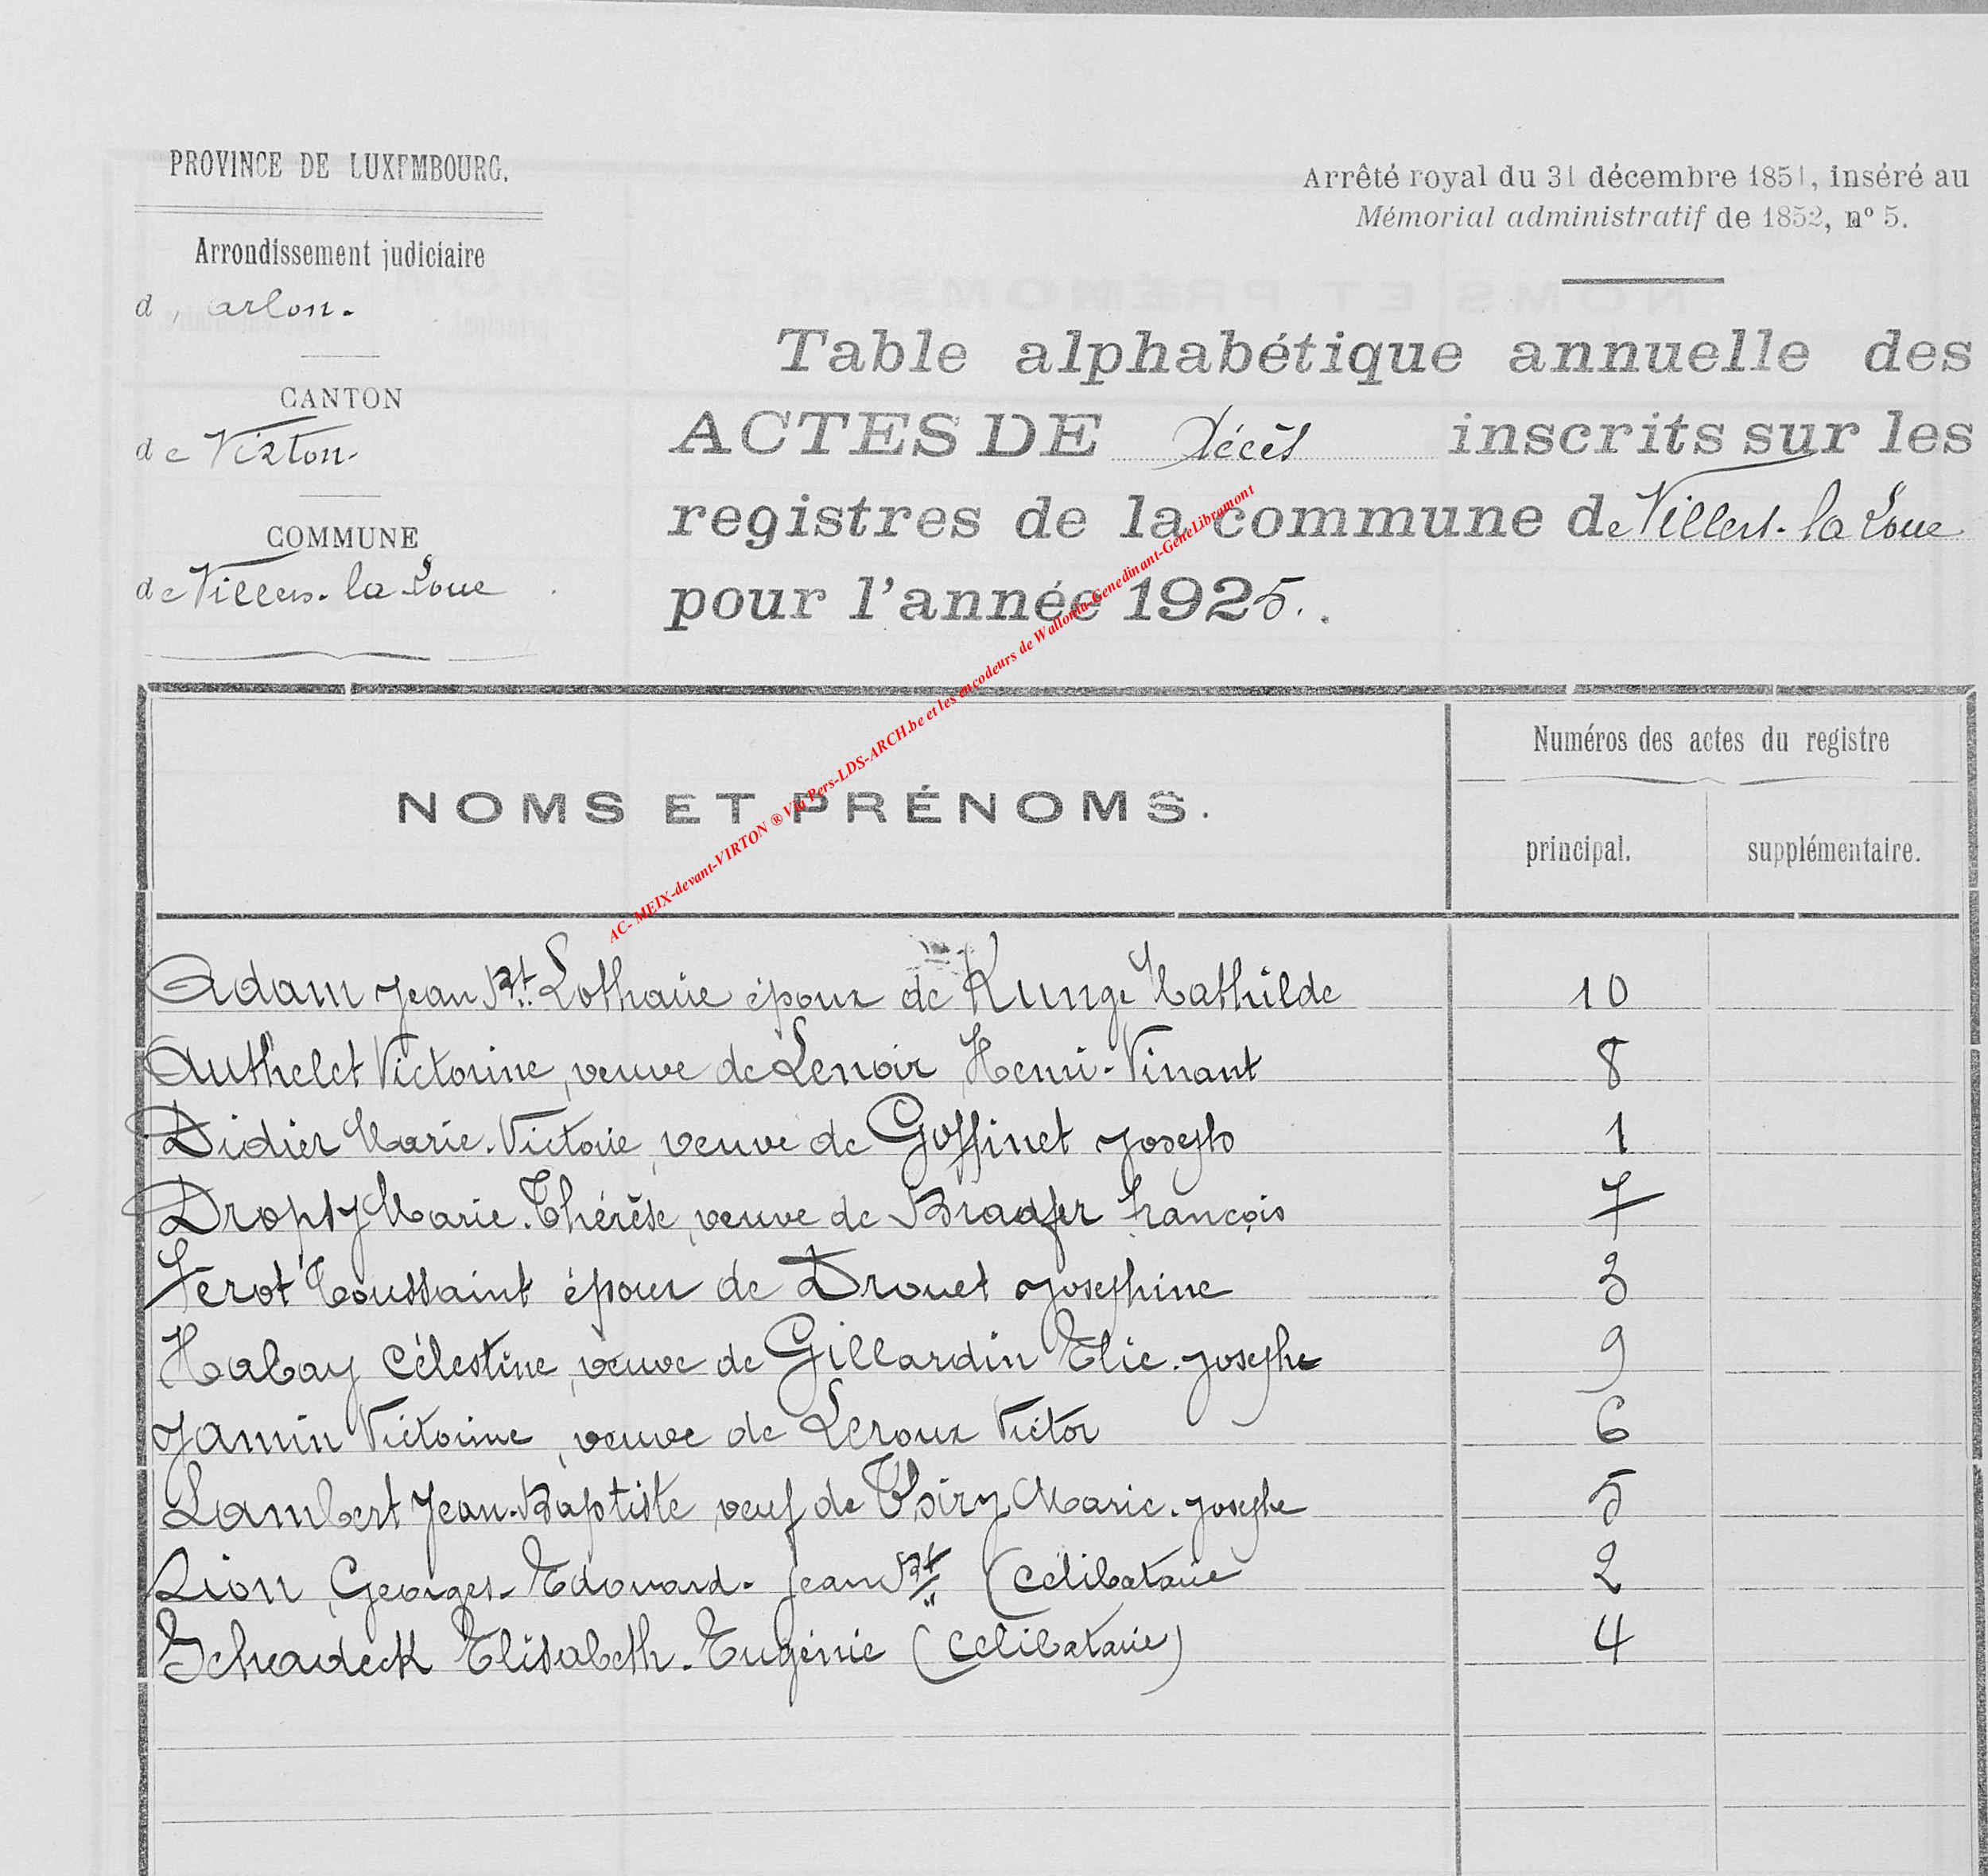 PROVINCE DE LUXEMBOURG.
Arrondissement judiciaire
d, arlon.
CANTON
de Virton
COMMUNE
de Villers-la Loue
Arrêté royal du 31 décembre 1851, inséré au
Mémorial administratif de 1852, nº 5.
Table alphabétique annuelle des
ACTES DE Décès inscrits sur les
registres de la commune de Villers-la Loue
pour l'année 1925.
AC-MEIX-devant-VIRTON ® Via Pers-LDS-ARCH.be et les encodeurs de Wallonia-Genedinant-GeneLibramont
NOMS ET PRÉNOMS.
Numéros des actes du registre
principal.
supplémentaire.
Adam Jean Bt. Lothaire époux de Kunge Mathilde 10
Authelet Victorine, veuve de Lenoir Henri-Vinant 8
Didier Marie-Victoire, veuve de Goffinet Joseph 1
Dropsy Marie-Thérèse, veuve de Bradfer François 7
Ferot Toussaint époux de Drouet Josephine 3
Habay Célestine, veuve de Gillardin Elie-Josephe 9
Jamin Victorine, veuve de Leroux Victor 6
Lambert Jean-Baptiste veuf de Thiry Marie-Josephe 5
Lion Georges-Edouard-Jean Bt (Célibataire 2
Schradeck Elisabeth-Eugénie (Célibataire) 4